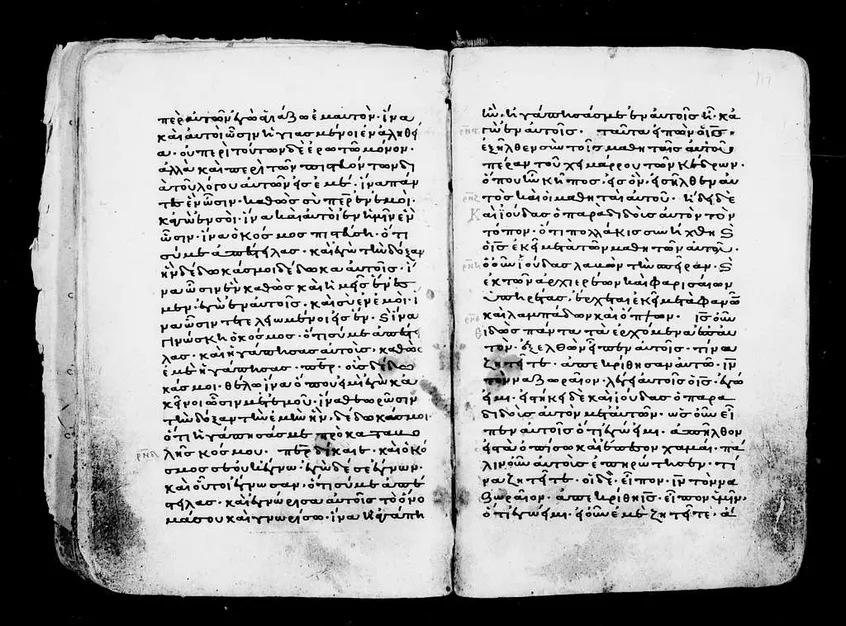 περ αὐτῶν ἐγὼ ἁγιάζω ἐμαυτὸν· ἵνα
καὶ αὐτοὶ ὦσιν ἡγιασμένοι ἐν ἀληθεί
α· οὐ περὶ τούτων δὲ ἐρωτῶ μόνον·
ἀλλὰ καὶ περὶ τῶν πιστευόντων δι
ὰ τοῦ λόγου αὐτῶν εἰς ἐμέ· ἵνα πάν
τες ἓν ὦσιν· καθὼς σὺ περ ἐν ἐμοὶ·
κἀγὼ ἐν σοὶ· ἵνα καὶ αὐτοὶ ἐν ἡμῖν ἓν
ὦσιν· ἵνα ὁ κόσμος πιστεύσῃ· ὅτι
σύ με ἀπέστειλας· καὶ ἐγὼ τὴν δόξαν
ἣν δέδωκάς μοι δέδωκα αὐτοῖς· ἵ
να ὦσιν ἓν καθὼς καὶ ἡμεῖς ἕν ἐσ
μεν· ἐγὼ ἐν αὐτοῖς· καὶ σὺ ἐν ἐμοί· ἵ
να ὦσιν τετελειωμένοι εἰς ἕν· καὶ ἵνα
γινώσκῃ ὁ κόσμος· ὅτι σύ με ἀπέστει
λας· καὶ ἠγάπησας αὐτοὺς· καθὼς
ἐμὲ ἠγάπησας· περ· οὓς δέδω
κάς μοι· θέλω ἵνα ὅπου εἰμὶ ἐγὼ κἀ
κεῖνοι ὦσιν μετ' ἐμοῦ· ἵνα θεωρῶσιν
τὴν δόξαν τὴν ἐμὴν ἣν· δέδωκάς μοι
ὅτι ἠγάπησάς με πρὸ καταβο
λῆς κόσμου· περ δίκαιε· καὶ ὁ κό
σμος σε οὐκ ἔγνω· ἐγὼ δέ σε ἔγνων·
καὶ οὗτοι ἔγνωσαν· ὅτι σύ με ἀπέ
στειλας· καὶ ἐγνώρισα αὐτοῖς τὸ ὄνο
μά σου καὶ γνωρίσω· ἵνα ἡ ἀγάπη
ἣν ἠγάπησάς με ἐν αὐτοῖς ᾖ· κἀ
γὼ ἐν αὐτοῖς· ταῦτα εἰπὼν ὁ ις
ἐξῆλθεν σὺν τοῖς μαθηταῖς αὐτοῦ·
πέραν τοῦ χειμάρρου τῶν κέδρων·
ὅπου ἦν κῆπος· εἰς ὃν· εἰσῆλθεν αὐ
τὸς καὶ οἱ μαθηταὶ αὐτοῦ· ἤδει δὲ
καὶ ἰούδας ὁ παραδιδοὺς αὐτὸν τὸν
τόπον· ὅτι πολλάκις συνήχθη καὶ
ὁ ις ἐκεῖ μετὰ τῶν μαθητῶν αὐτοῦ·
ὁ οὖν ἰούδας λαβὼν τὴν σπεῖραν· καὶ
ἐκ τῶν ἀρχιερέων καὶ φαρισαίων
ὑπηρέτας· ἔρχεται ἐκεῖ μετὰ φανῶν
καὶ λαμπάδων καὶ ὅπλων· ις οὖν
εἰδὼς πάντα τὰ ἐρχόμενα ἐπ' αὐ
τὸν· ἐξελθὼν εἶπεν αὐτοῖς· τίνα
ζητεῖτε· ἀπεκρίθησαν αὐτῷ· ιν
τὸν ναζωραῖον· λέγει αὐτοῖς ὁ ις· ἐγώ
εἰμι· εἱστήκει δὲ καὶ ἰούδας ὁ παρα
διδοὺς αὐτὸν μετ' αὐτῶν· ὡς οὖν εἶ
πεν αὐτοῖς ὅτι ἐγώ εἰμι· ἀπῆλθον
εἰς τὰ ὀπίσω καὶ ἔπεσον χαμαί· πά
λιν οὖν αὐτοὺς ἐπηρώτησεν· τί
να ζητεῖτε· οἱ δὲ· εἶπον· ιν τὸν να
ζωραῖον· ἀπεκρίθη ις· εἶπον ὑμῖν·
ὅτι ἐγώ εἰμι· εἰ οὖν ἐμὲ ζητεῖτε· ἄ